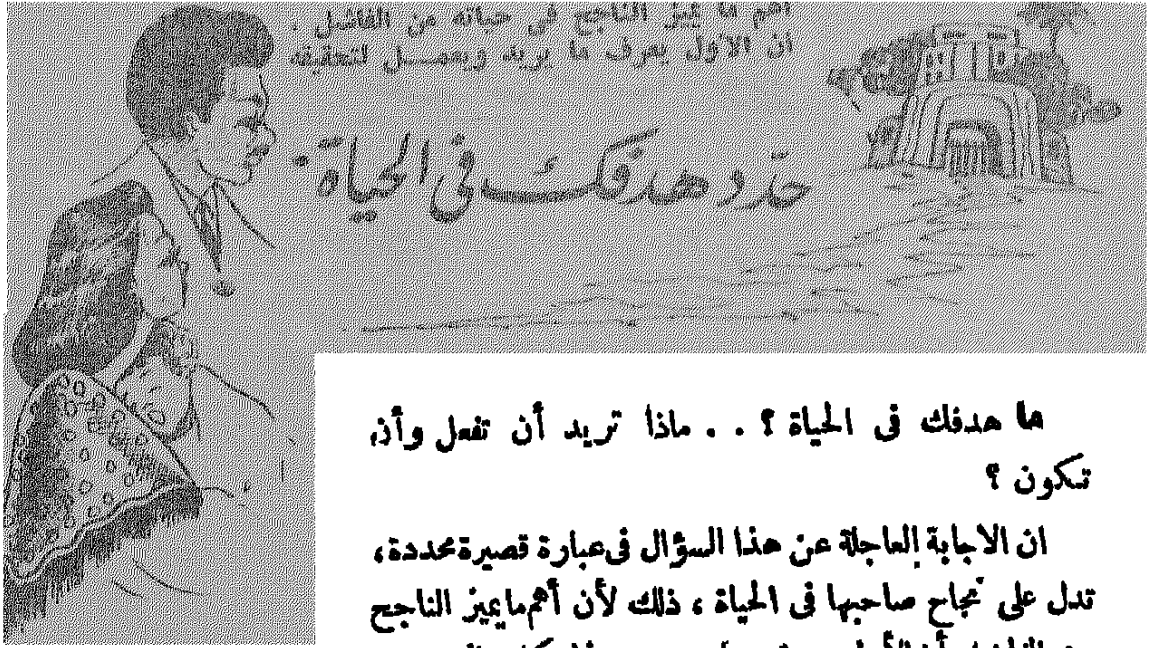 أهم ما يميز الناجح فى حياته من الفاشل .
ان الاول يعرف ما يريد ويعمـــل لتحقيقه
حدد هدفك فى الحياة .
ما هدفك فى الحياة ؟ . . ماذا تريد أن تفعل وأن
تكون ؟
ان الاجابة العاجلة عن هذا السؤال فى عبارة قصيرة محددة ،
تدل على نجاح صاحبها فى الحياة ، ذلك لأن أهم ما يميز الناجح